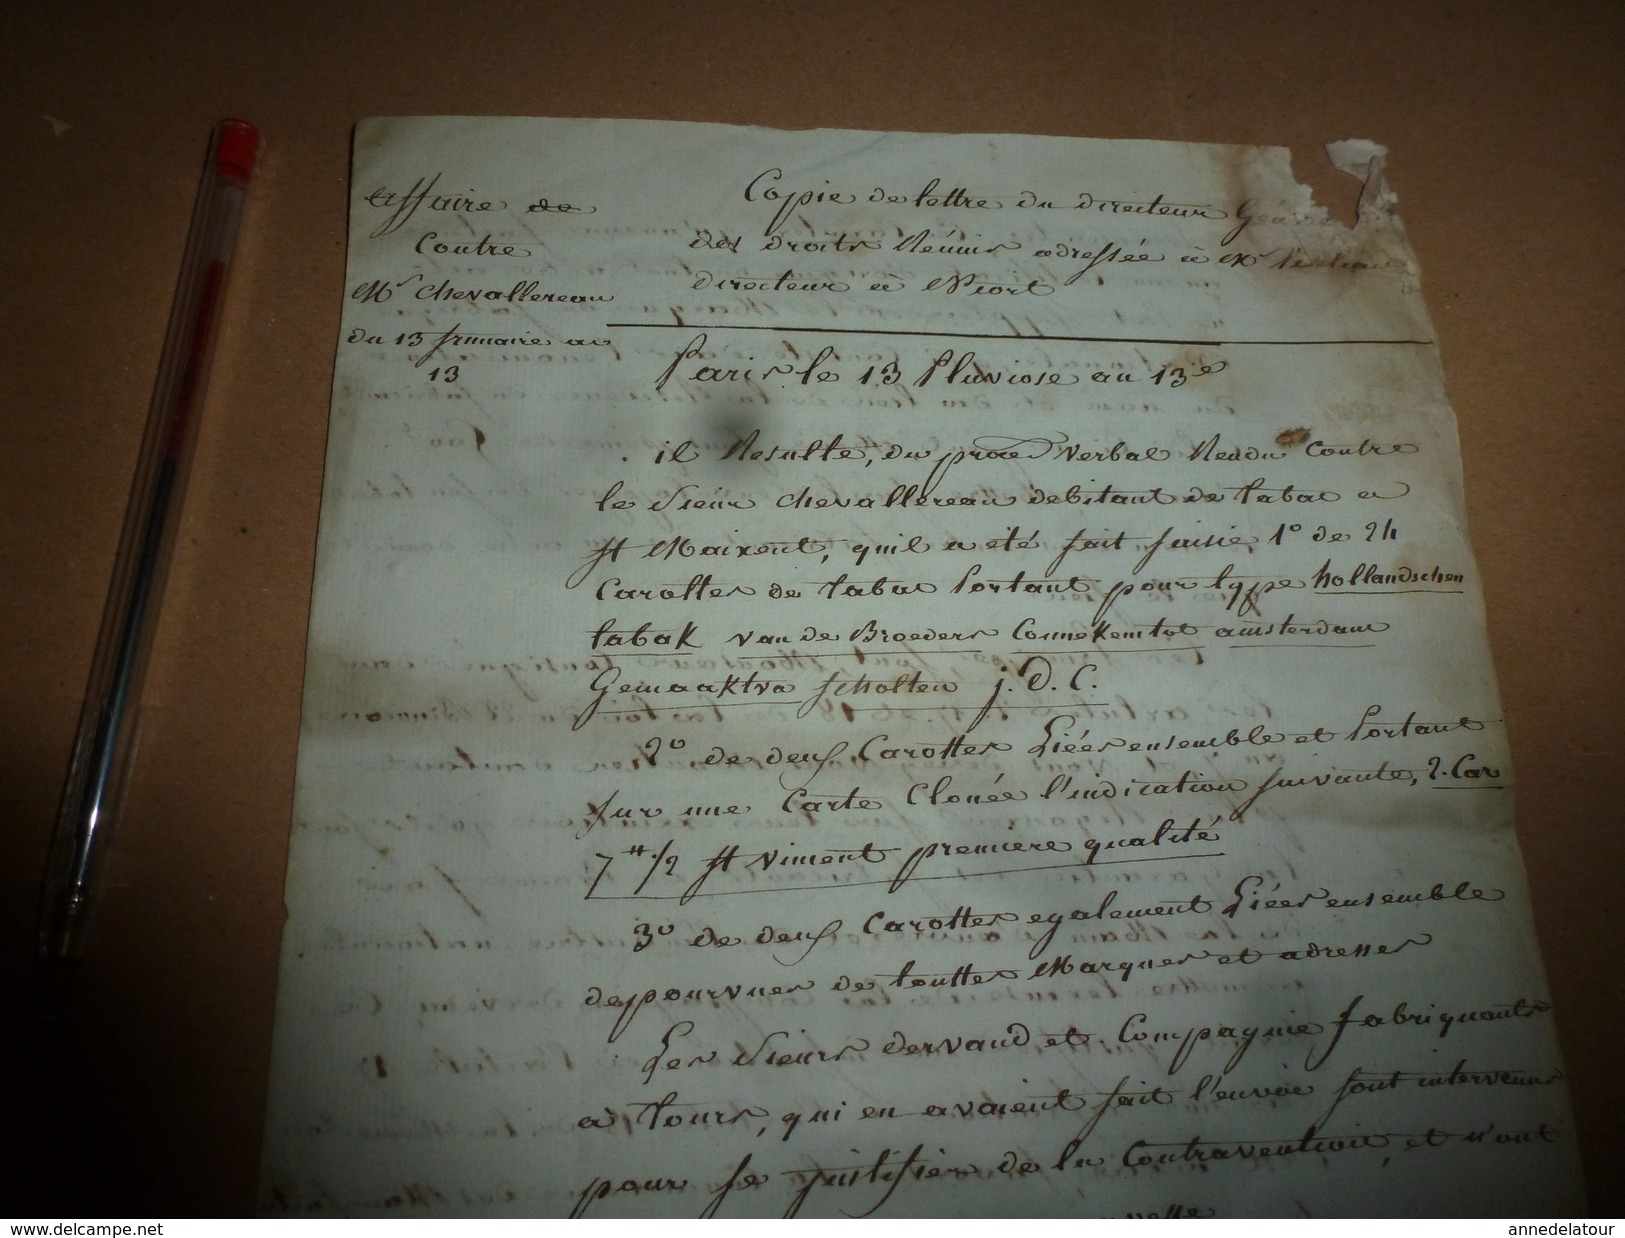 affaire de
Contre
Mr Chevallereau
du 13 frimaire an
13
Copie de lettre du directeur Géné
des droits Réunis adressée à Mr
directeur à Niort
Paris le 13 Pluviose an 13e
il Resulte, du procès verbal Rendu Contre
le Sieur Chevallereau debitant de tabac a
St Maixent, quil a eté fait saisie 1o de 24
Carottes de tabac Portant pour type hollandschen
tabak van de Broeders Connekemtot amsterdam
Gemaaktva scholten j. D. C.
2o de deux Carottes Liées ensemble et Portant
sur une Carte Clouée l'indication suivante, 2. Car
7 tt 1/2 St Viment premiere qualité
3o de deux Carottes egalement Liées ensemble
depourvues de touttes Marques et adresses
Les Sieurs dervaud et Compagnie fabriquants
à Tours, qui en avaient fait l'envoie sont intervenus
pour se justifier de la Contravention, et n'ont
www.delcampe.net
annedelatour